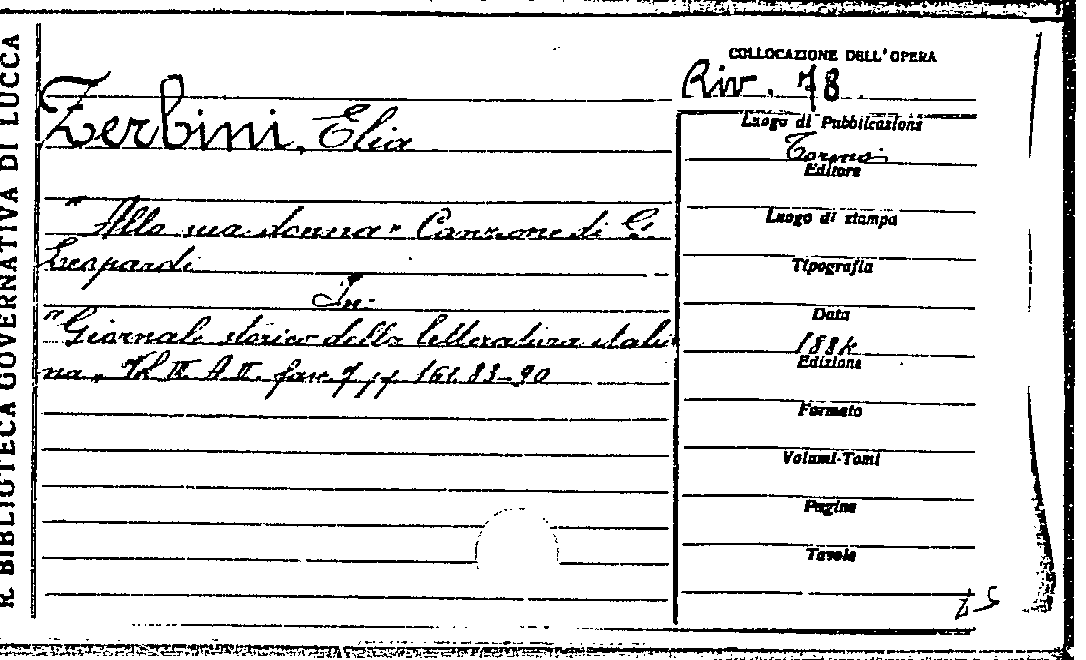 R. BIBLIOTECA GOVERNATIVA DI LUCCA
COLLOCAZIONE DELL'OPERA
Riv. 78
Zerbini, Elia
"Alla sua donna" Canzone di G.
Leopardi
In
"Giornale storico della letteratura italia
na" Vol. III A. II. fasc. 7 pp 83-90
Luogo di Pubblicazione
Torino
Editore
Luogo di stampa
Tipografia
Data
1884
Edizione
Formato
Volumi-Tomi
Pagine
Tavole